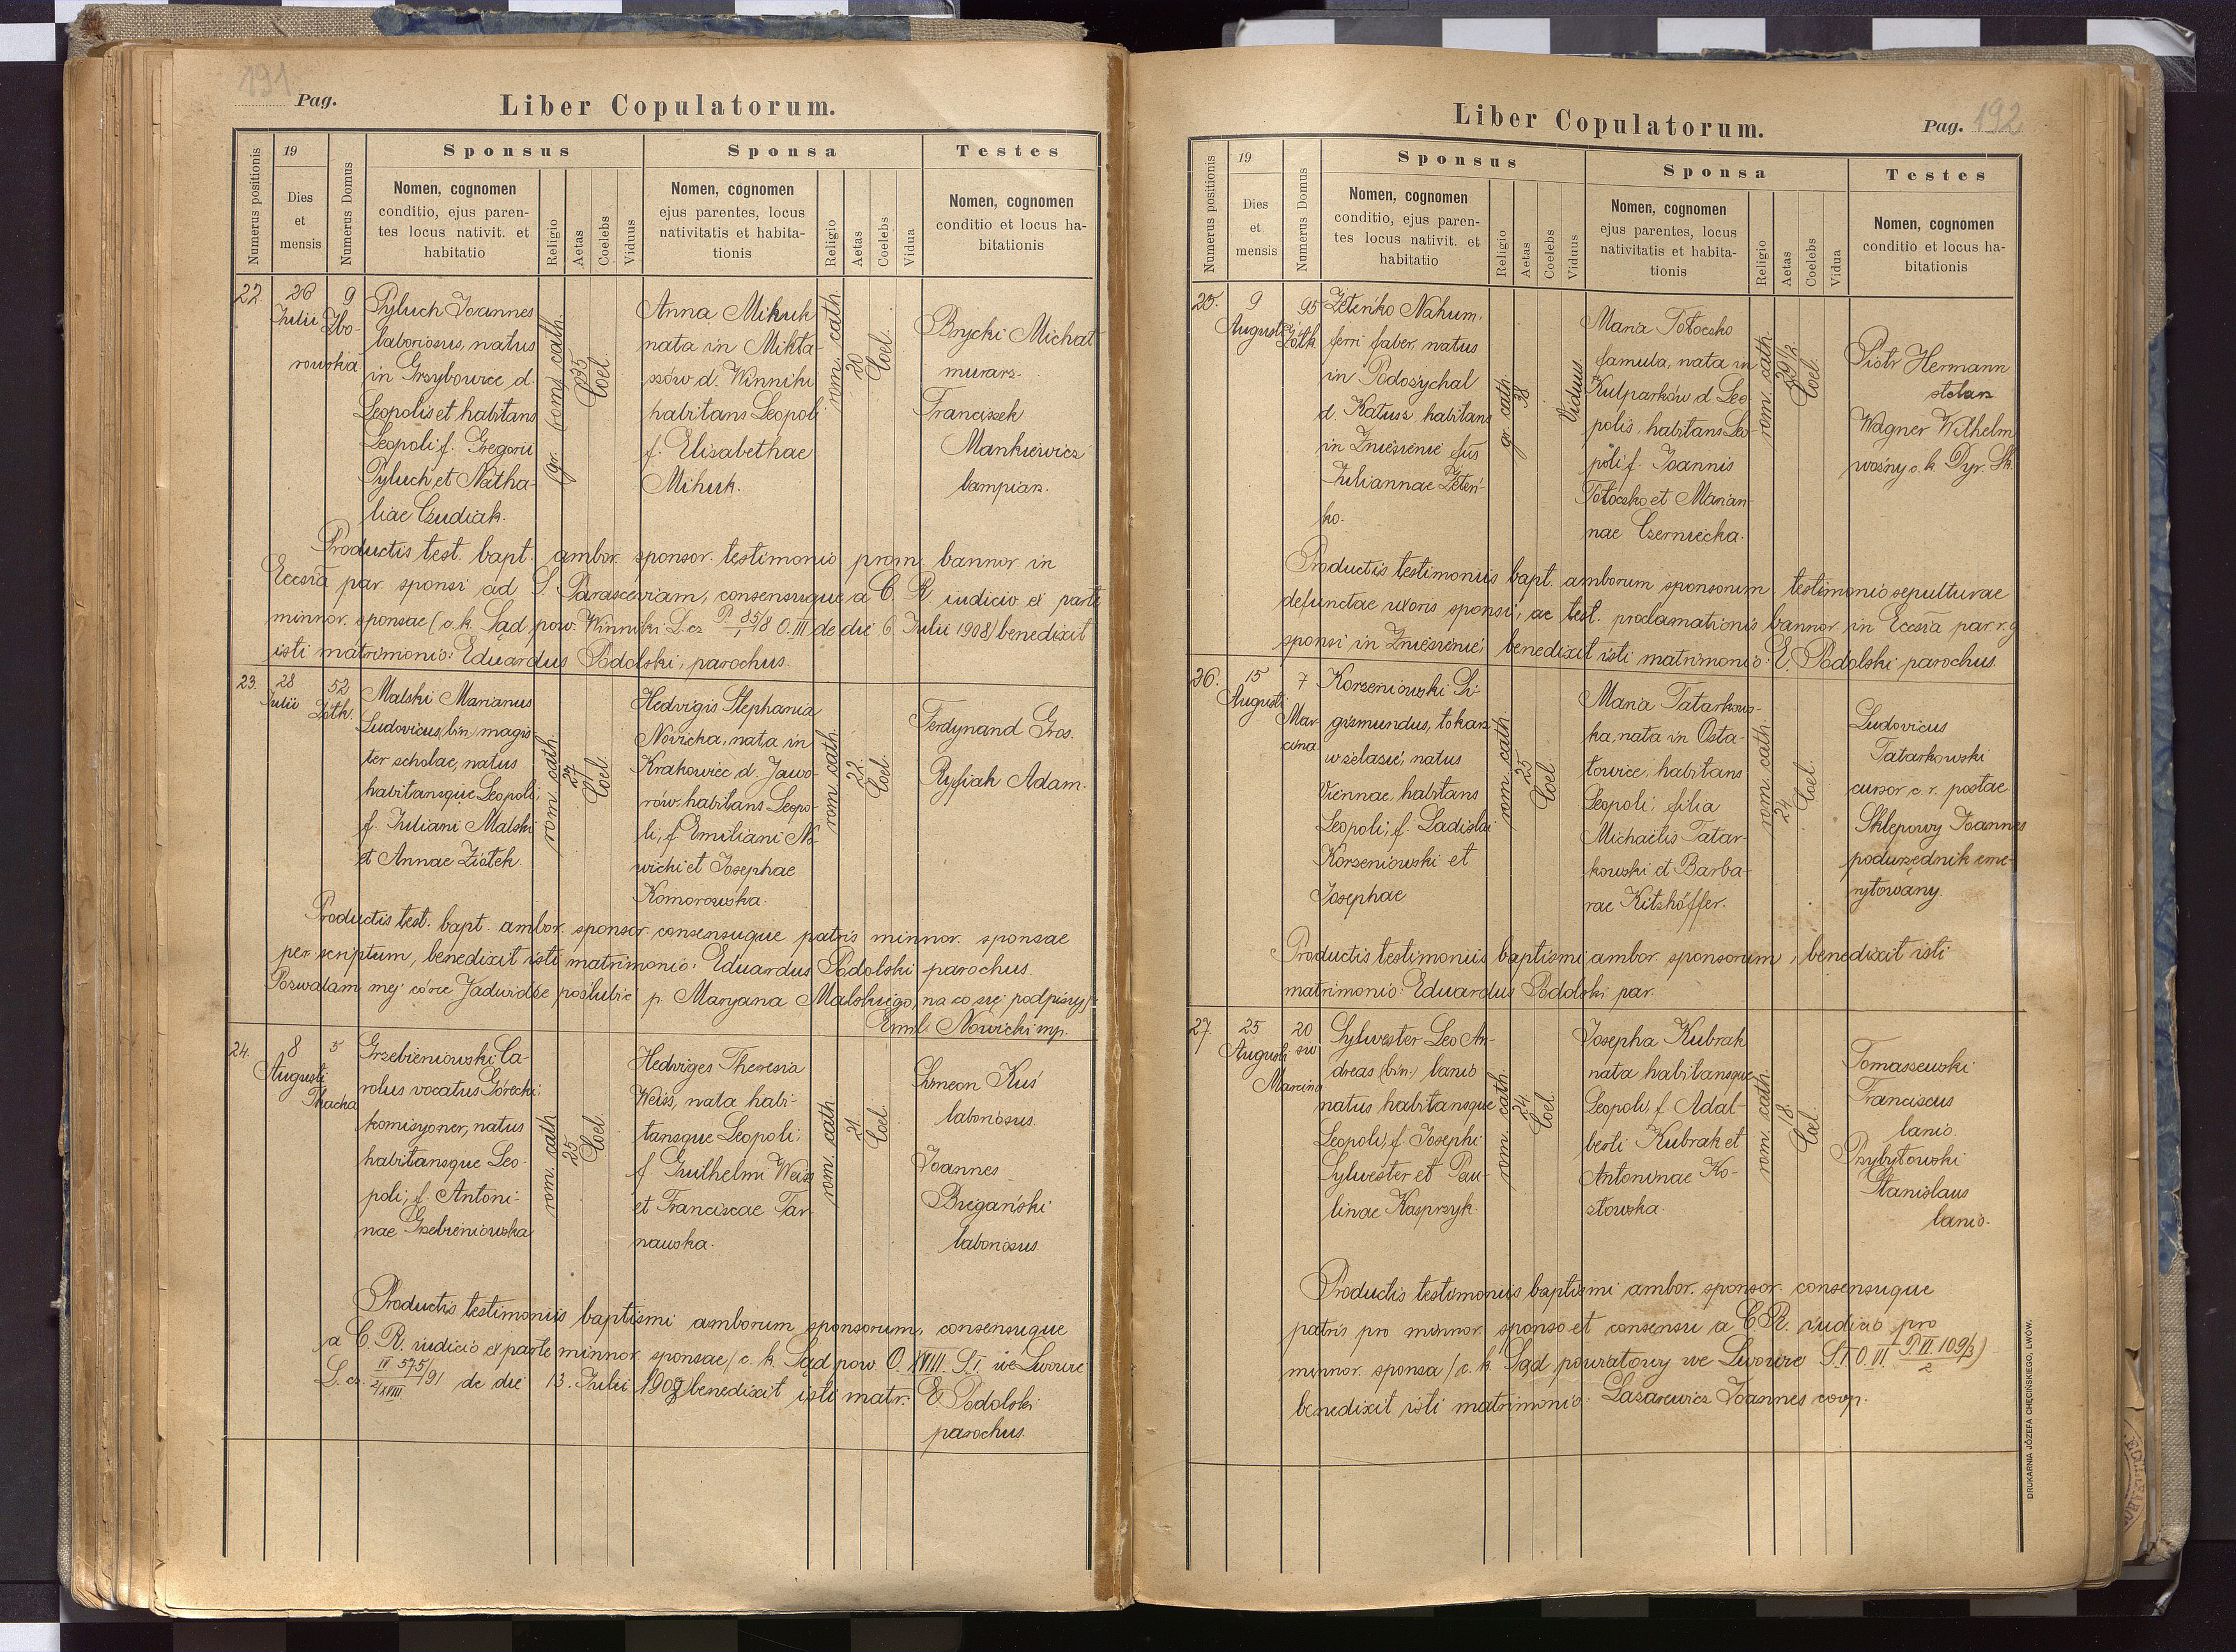 191
Pag.
Liber Copulatorum.
Numerus positionis
19
Dies
et
mensis
Numerus Domus
Sponsus
Nomen, cognomen
conditio, ejus paren-
tes locus nativit. et
habitatio
Religio
Aetas
Coelebs
Viduus
Sponsa
Nomen, cognomen
ejus parentes, locus
nativitatis et habita-
tionis
Religio
Aetas
Coelebs
Vidua
Testes
Nomen, cognomen
conditio et locus ha-
bitationis
22
26
Julii
9
Zbo-
rowska
Pyluch Joannes
laboriosus, natus
in Grzybowice d.
Leopolis et habitans
Leopoli f. Gregorii
Pyluch et Natha-
liae Czudiak.
gr. cath.
35
Coel
Anna Mihuh
nata in Mikła-
szów d. Winniki
habitans Leopoli
f. Elisabethae
Mihuh.
rom. cath.
20
Coel.
Brycki Michał
murarz.
Franciszek
Mankiewicz
lampiarz.
Productis test. bapt. ambor. sponsor. testimonio prom. bannor. in
Eccsia par. sponsi ad S. Parasceviam, consensuque a C. R. iudicio ex parte
minnor. sponsae (c. k. Sąd pow. Winniki L. cz. P. 85/8 O. III de die 6. Julii 1908) benedixit
isti matrimonio: Eduardus Podolski, parochus.
23.
28
Julii
52
Żółk.
Malski Marianus
Ludovicus (bin.) magis
ter scholae, natus
habitansque Leopoli;
f. Juliani Malski
et Annae Ziółek.
rom. cath.
27
Coel
Hedvigis Stephania
Novicka, nata in
Krakowiec d. Jawo-
rów, habitans Leopo-
li, f. Emiliani No-
wicki et Josephae
Komorowska.
rom. cath.
22
Coel.
Ferdynand Gros.
Ryfiak Adam.
Productis test. bapt. ambor. sponsor. consensuque patris minnor. sponsae
per scriptum, benedixit isti matrimonio: Eduardus Podolski parochus.
Pozwalam mej córce Jadwidze poślubić p. Maryana Malskiego, na co się podpisuję:
Emil Nowicki mp.
24.
8
Augusti
5
Tkacka
Grzebieniowski Ca-
rolus vocatus Górecki;
komisyoner, natus
habitansque Leo-
poli; f. Antoni-
nae Grzebieniowska
rom. cath.
25
Coel.
Hedviges Theresia
Weiss, nata habi-
tansque Leopoli;
f. Guilhelmi Weiss
et Franciscae Tar-
nawska.
rom. cath
21
Coel.
Szmeon Kuś
laboriosus.
Joannes
Bregański
laboriosus.
Productis testimoniis baptismi amborum sponsorum, consensuque
a C. R. iudicio ex parte minnor. sponsae (c. k. Sąd pow. O. XVIII. S. I. we Lwowie
L. cz. IV 575/91 2/XVIII de die 13. Julii 1908) benedixit isti matr. E. Podolski
parochus.
Liber Copulatorum.
Pag. 192
Numerus positionis
19
Dies
et
mensis
Numerus Domus
Sponsus
Nomen, cognomen
conditio, ejus paren-
tes locus nativit. et
habitatio
Religio
Aetas
Coelebs
Viduus
Sponsa
Nomen, cognomen
ejus parentes, locus
nativitatis et habita-
tionis
Religio
Aetas
Coelebs
Vidua
Testes
Nomen, cognomen
conditio et locus ha-
bitationis
25.
9
Augusti
95
Żółk.
Zeteńko Nahum,
ferri faber, natus
in Podosychal
d. Kałusz, habitans
in Zniesienie fus
Juliannae Zeteń-
ko.
gr. cath.
38
Viduus
Maria Tołoczko
famula, nata in
Kulparków d. Leo-
polis, habitans Leo-
poli f. Joannis
Tołoczko et Marian-
nae Czerniecka.
rom. cath.
29 1/2
Coel.
Piotr Hermann
stolarz
Wagner Wilhelm
woźny c. k. Dyr. Sk.
Productis testimoniis bapt. amborum sponsorum, testimonio sepulturae
defunctae uxoris sponsi, ac test. proclamationis bannor. in Eccsia par. r. g
sponsi in Zniesienie, benedixit isti matrimonio: E. Podolski parochus.
26.
15
Augusti
7
Mar-
cina
Korzeniowski Si-
gismundus, tokarz
w żelasie, natus
Viennae, habitans
Leopoli; f. Ladislai
Korzeniowski et
Josephae
rom. cath.
25
Coel
Maria Tatarkows-
ka, nata in Osta-
łowice, habitans
Leopoli, filia
Michaelis Tatar-
kowski et Barba-
rae Kitzhöffer.
rom. cath.
24
Coel.
Ludovicus
Tatarkowski
cursor c. r. postae
Sklepowy Joannes
podurzędnik eme-
rytowany.
Productis testimoniis baptismi ambor. sponsorum, benedixit isti
matrimonio: Eduardus Podolski par.
27.
25
Augusti
20
św
Marcina
Sylwester Leo An-
dreas (bin.) lanio
natus habitansque
Leopoli, f. Josephi
Sylwester et Pau-
linae Kasprzyk.
rom. cath.
24
Coel.
Josepha Kubrak
nata habitansque
Leopoli, f. Adal-
berti Kubrak et
Antoninae Ko-
słowska.
rom. cath.
18
Coel.
Tomaszewski
Franciscus
lanio.
Przybyłowski
Stanislaus
lanio.
Productis testimoniis baptismi ambor. sponsor. consensuque
patris pro minnor. sponso et consensu a C. R. iudicio pro
minnor. sponsa (c. k. Sąd powiatowy we Lwowie S. I. O. VI. P. VI. 109/8 2)
benedixit isti matrimonio: Lazarewicz Joannes coop.
DRUKARNIA JÓZEFA CHĘCIŃSKIEGO, LWÓW.